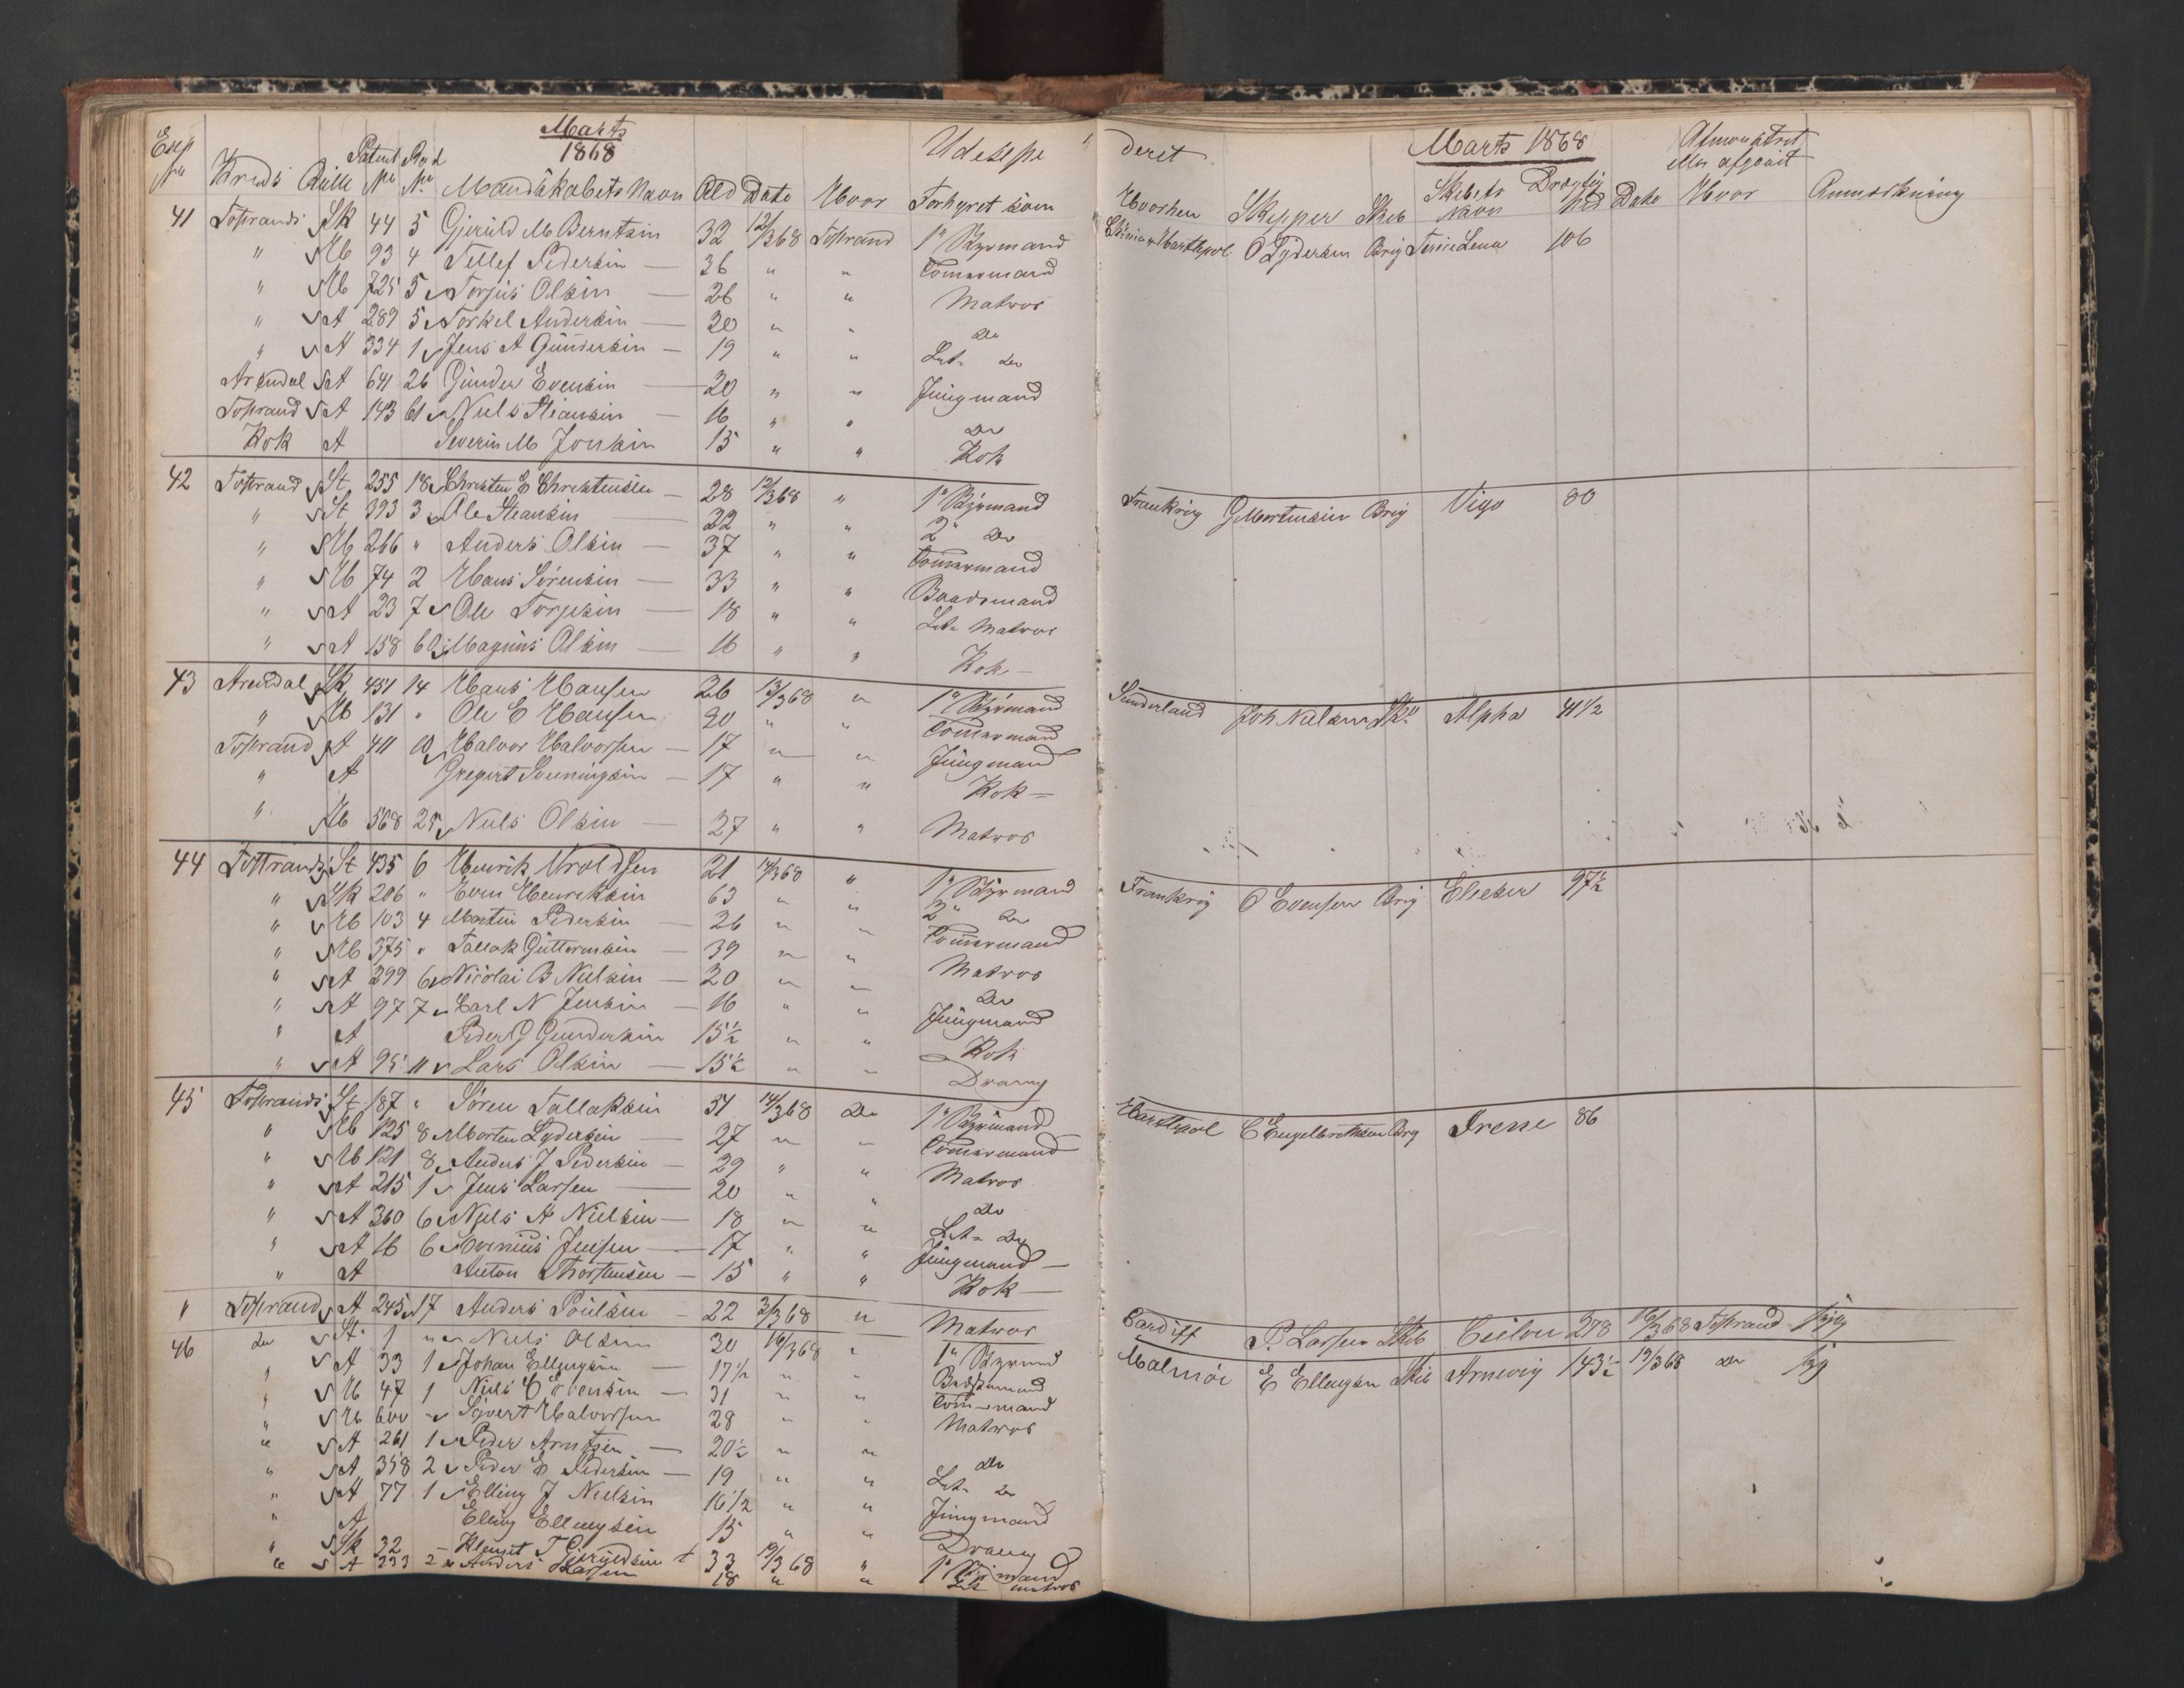 Marts
1868
Exp No Kreds Rulle Patent No Rul No Mandskabets Navn Ald Dato Hvor Forhyret som
Udespe
41 Tostrands Sk 44 5 Gjeruld M Berntsen 32 12/3 68 Tostrand 1ste Styrmand
" Ub 93 4 Tellef Pedersen — 36 " " Tømermand
" Ub 725 5 Torjus Olsen — 26 " " Matros
" A 289 5 Torkel Andersen — 20 " " Do
" A 334 1 Jens A Gundersen — 19 " " Let Do
Arendal A 641 26 Gunder Evensen — 20 " " Jungmand
Tostrand A 143 61 Niels Steansen — 16 " " Do
Kok A Severin M Jonsen 15 " " Kok
42 Tostrand St 255 18 Christen E Christensen — 28 12/3 68 " 1ste Styrmand
" St 393 3 Ole Steansen 22 " " 2 Do
" Ub 266 " Anders Olsen — 37 " " Tømermand
" Ub 74 2 Hans Sørensen — 33 " " Baadsmand
" A 23 7 Ole Torjesen — 18 " " Let Matros
" A 158 60 Magnus Olsen — 16 " " Kok —
43 Arendal Sk 451 14 Hans Hansen 26 13/3 68 " 1ste Styrmand
" Ub 131 " Ole E Hansen 20 " " Tømermand
Tostrand A 411 10 Halvor Halvorsen — 17 " " Jungmand
" A Gregert Svenningsen — 17 " " Kok —
" Ub 568 25 Niels Olsen — 27 " " Matros
44 Tostrands St 435 6 Henrik Aroldsen 21 14/3 68 " 1ste Styrmand
" Sk 206 " Even Henriksen 63 " " 2 Do
" Ub 103 4 Martin Pedersen — 26 " " Tømermand
" Ub 375 " Tallak Guttormsen — 39 " " Matros
" A 299 6 Nicolai B Nielsen — 20 " " Do
" A 97 7 Carl N Jensen — 16 " " Jungmand
" A Peder G Gundersen 15½ " " Kok
" A 95 11 Lars Olsen — 15½ " " Dræng
45 Tostrands St 187 " Søren Tallaksen 51 14/3 68 Do 1ste Styrmand
" Ub 125 8 Morten Lydersen — 27 " " Tømermand
" Ub 121 8 Anders J Pedersen — 29 " " Matros
" A 215 1 Jens Larsen — 20 " " Do
" A 360 6 Niels A Nielsen — 18 " " Let Do
" A 16 6 Jensen — 17 " " Jungmand —
" A Anton Thorstensen — 15 " " Kok —
" Tostrand A 245 17 Anders Poulsen — 22 3/3 68 " Matros
46 Do St 1 " Niels Olsen 30 16/3 68 " 1ste Styrmd
" A 33 1 Johan Ellingsen — 17½ " " Badsmand
" Ub 47 1 Niels — 31 " " Tømmermand
" Ub 600 " Sivert Halvorsen 28 " " Matros
" A 261 1 Peder Arntzen — 20½ " " Do
" A 358 2 Peder E Pedersen — 19 " " Let Do
" A 77 1 Elling J Nielsen 16½ " " Jungmand
" A Elling Ellingsen 15 " " Dræng
" Sk 32 — Klemet T Gjeruldsen 33 19/3 68 " 1ste Styrmand
" A 233 2 Anders Larsen 18 " " Let matros
deret
Marts 1868
Afmønstret eller afgaaet
Hvorhen Skipper Skib Skibets Navn Drægtighed Dato Hvor Anmærkning
Hartlepol O Lydersen Brig Lena 106
Frankrig G Mortensen Brig Vigo 80
Sunderland Joh Nielsen Alpha 41½
Frankrig O Evensen Brig Elieser 97½
Hartlepol C Engelbrethsen Brig Irene 86
Cardiff P. Larsen Skib Ceilon 278 16/3 68 Tostrand syg
Malmöe E Ellingsen Skib Arnevig 143½ 19/3 68 Do syg